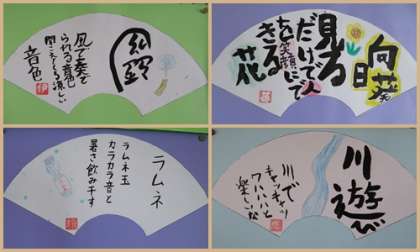 風鈴
風で奏で
られる音色
聞こえてくる涼しい
音色
向日葵
見る
だけで人
を笑顔にで
きる
花
ラムネ
ラムネ玉
カラカラ音と
暑さ飲み干す
川遊び
川で
キャッキャッ
楽しいな